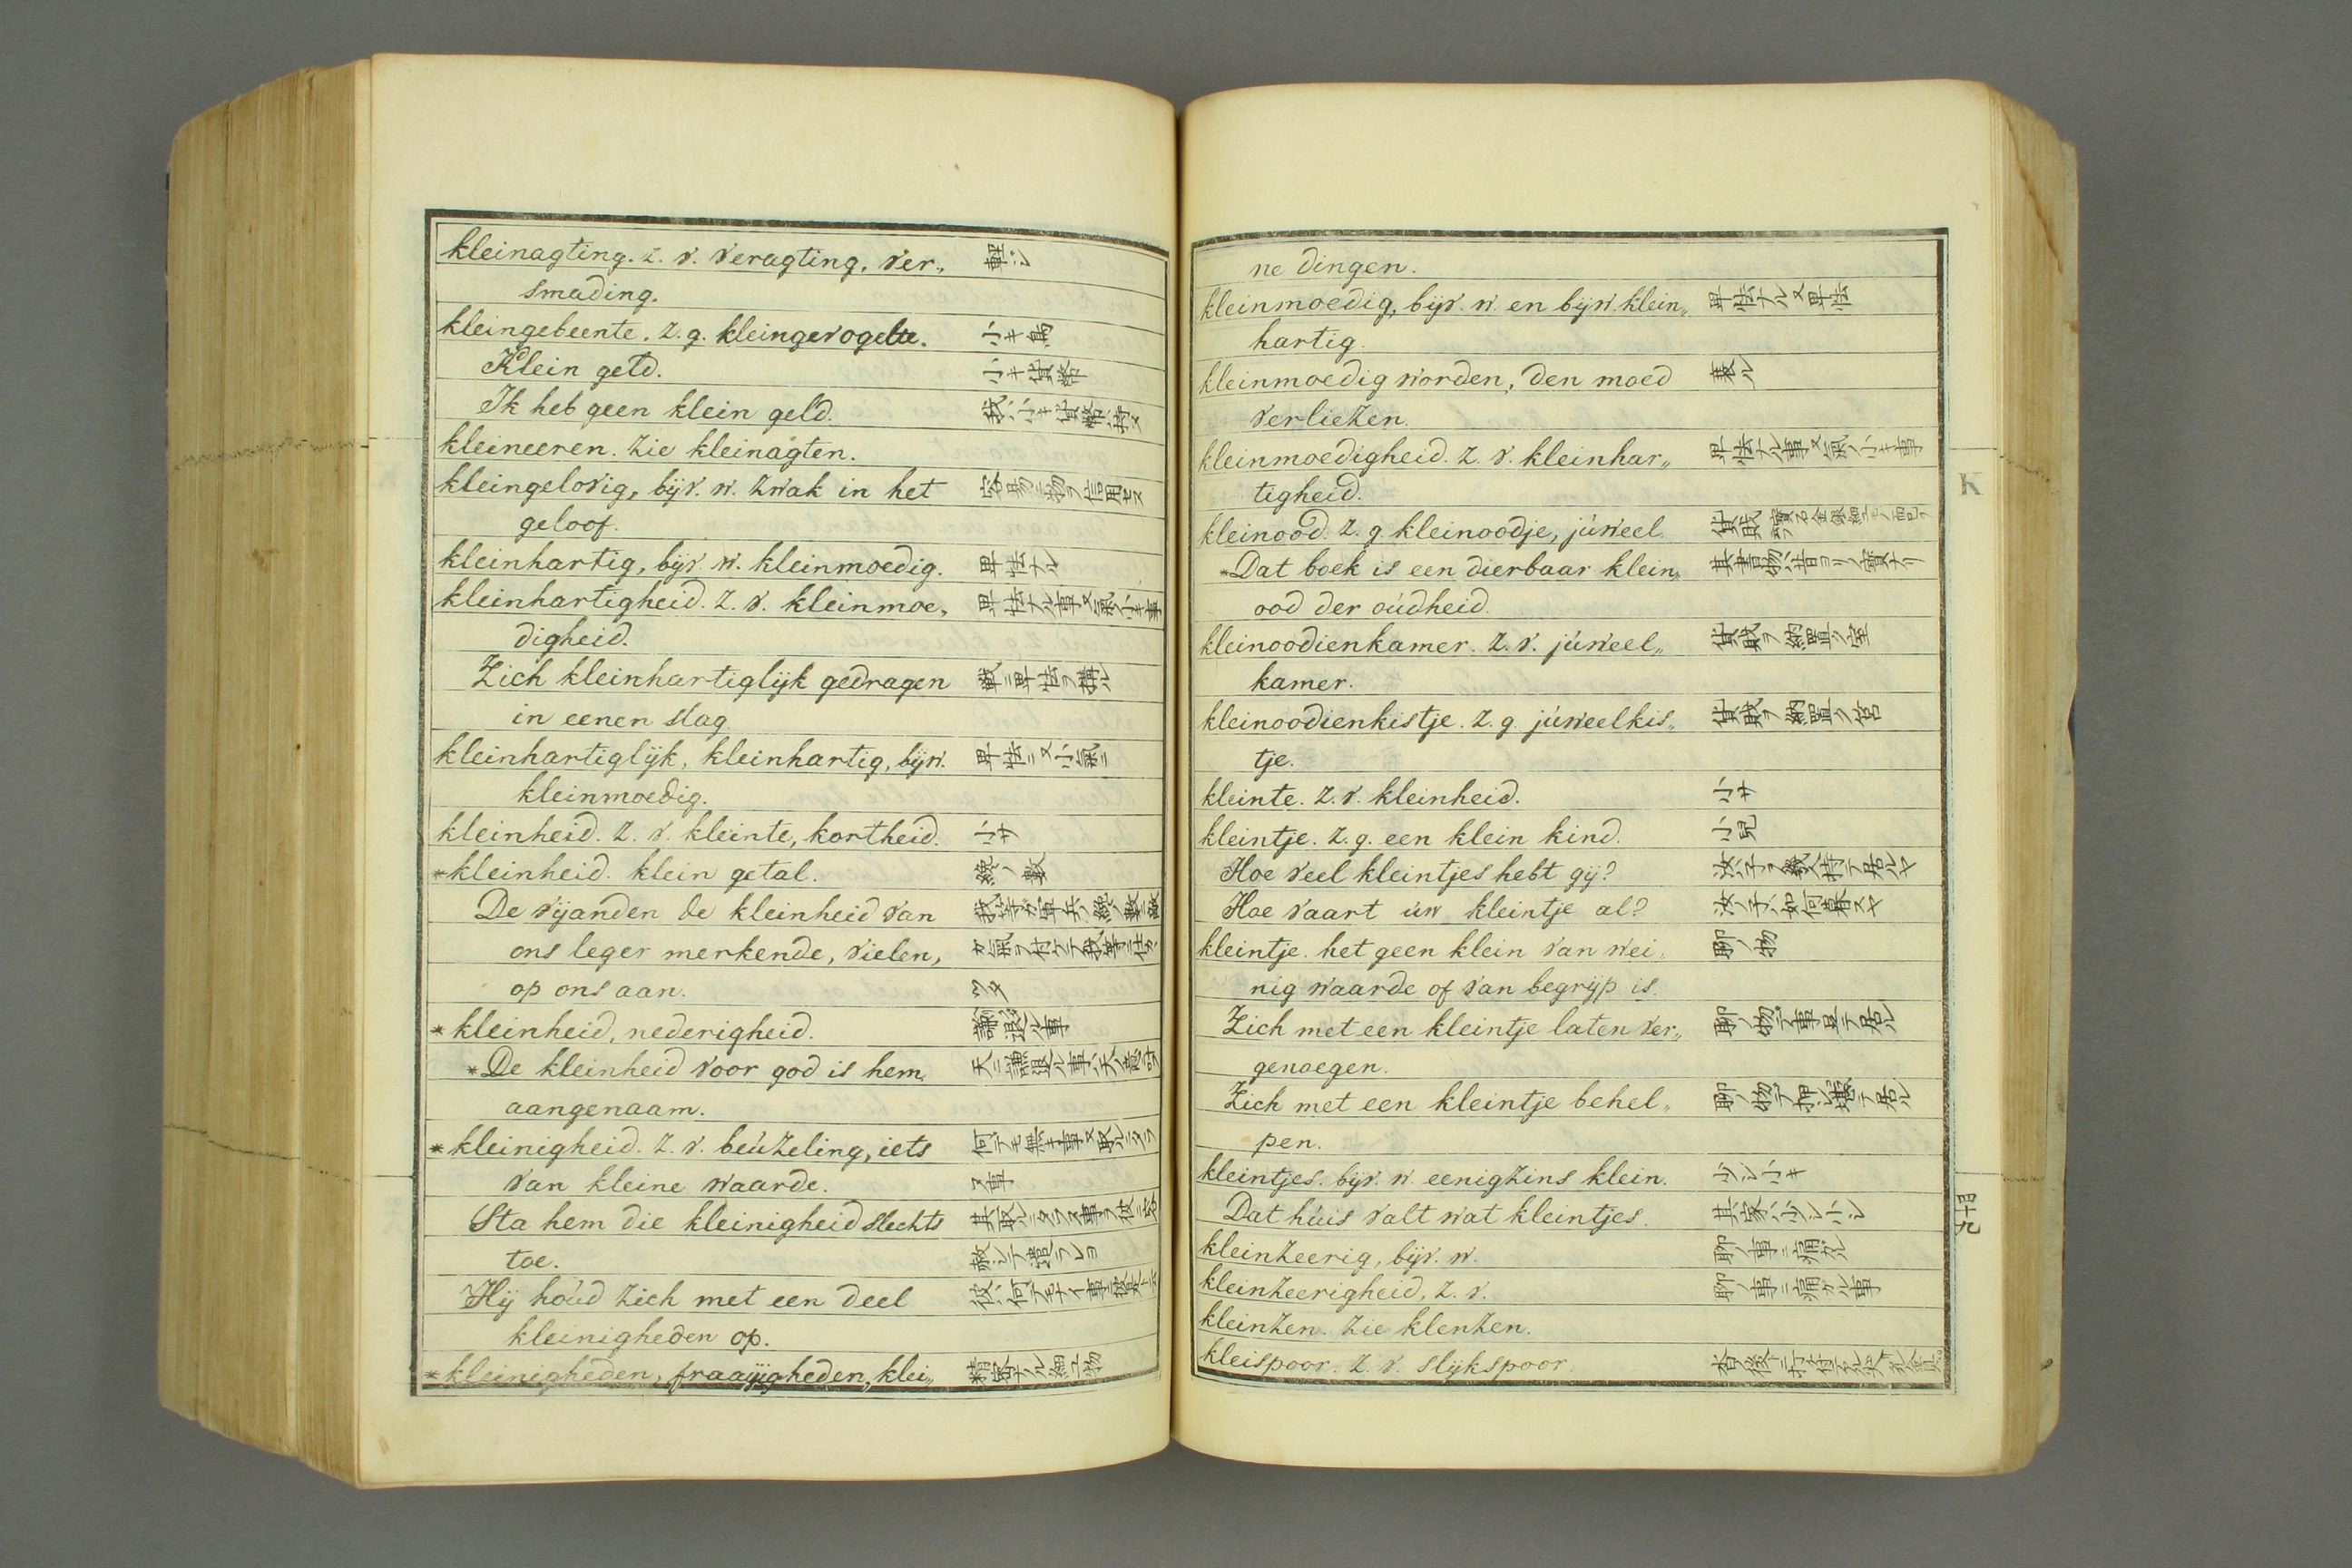 kleinagting. z. v. veragting, ver„ 軽シ
smading.
kleingebeente. z. g. kleingevogelte. 小キ鳥
Klein geld. 小キ貨幣
Ik heb geen klein geld. 我ハ小キ貨幣持ヌ
kleineeren. zie kleinagten.
kleingelovig, bijv. w. zwak in het 容易ニ物ヲ信用セヌ
geloof.
kleinhartig, bijv. w. kleinmoedig. 卑怯ナル
kleinhartigheid. z. v. kleinmoe„ 卑怯ナル事又氣ノ小キ事
digheid.
Zich kleinhartiglijk gedragen 戦ニ卑怯ヲ構ル
in eenen slag.
kleinhartiglijk, kleinhartig, bijw. 卑怯ニ又小氣ニ
kleinmoedig.
kleinheid. z. v. kleinte, kortheid. 小サ
*kleinheid. klein getal. 纔ノ數
De vijanden de kleinheid van 我等ガ軍兵ノ纔ノ數ニ敵
ons leger merkende, vielen, ガ氣ヲ付ケテ我等ニ仕カ
op ons aan. ツタ
*kleinheid, nederigheid. 謙退ル事
*De kleinheid voor god is hem 天ニ謙退ル事ハ天ノ意ニ
aangenaam.
*kleinigheid. z. v. beúzeling, iets 何テモ無キ事又取ルニタラ
van kleine waarde. ヌ事
Sta hem die kleinigheid slechts 其取ルニタラヌ事ヲ彼ニ
toe. 赦シテ遣ラレヨ
Hij hoúd zich met een deel 彼ハ何テモナイ事ニ
kleinigheden op.
*kleinigheden, fraaijigheden, klei„ 精密ナル細工物
ne dingen.
kleinmoedig, bijv. w. en bijw. klein„ 卑怯ナル又卑怯
hartig.
kleinmoedig worden, den moed
verliezen.
kleinmoedigheid. z. v. kleinhar„ 卑怯ナル事又氣ノ小キ事
tigheid.
kleinood. z. g. kleinoodje, júweel. 貨財 寳石金銀細工モノ
*Dat boek is een dierbaar klein„ 其書物ハ昔ヨリノ寳ナリ
ood der oúdheid.
kleinoodienkamer. z. v. júweel„ 貨財ヲ納置ク室
kamer.
kleinoodienkistje. z. g. júweelkis„ 貨財ヲ納置ク筥
tje.
kleinte. z. v. kleinheid. 小サ
kleintje. z. g. een klein kind. 小兒
Hoe veel kleintjes hebt gij? 汝ハ子ヲ幾人持テ居ルヤ
Hoe vaart úw kleintje al? 汝ノ子ハ如何暮スヤ
kleintje. het geen klein van wei„ 聊ノ物
nig waarde of van begrijp is.
Zich met een kleintje laten ver„ 聊ノ物テ事足テ居ル
genoegen.
Zich met een kleintje behel„ 聊ノ物テ押シ堪テ居ル
pen.
kleintjes. bijv. w. eenigzins klein. 少シ小キ
Dat húis valt wat kleintjes. 其家ハ少シ小シ
kleinzeerig, bijv. w. 聊ノ事ニ痛ガル
kleinzeerigheid, z. v. 聊ノ事ニ痛ガル事
kleinzen. zie klenzen.
kleispoor. z. v. slijkspoor.
K
四十九